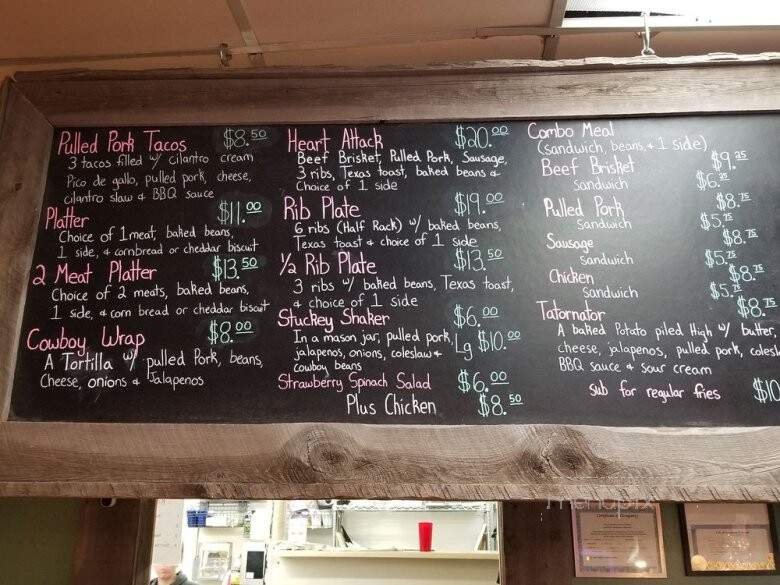 Pulled Pork Tacos $8.50
3 tacos filled w/ cilantro cream
Pico de gallo, pulled pork, cheese,
cilantro slaw & BBQ sauce
Platter $11.00
Choice of 1 meat, baked beans,
1 side, & cornbread or cheddar biscuit
2 Meat Platter $13.50
Choice of 2 meats, baked beans,
1 side, & corn bread or cheddar biscuit
Cowboy Wrap $8.00
A Tortilla w/ pulled Pork, beans,
Cheese, onions & Jalapenos
Heart Attack $20.00
Beef Brisket, Pulled Pork, Sausage,
3 ribs, Texas toast, baked beans &
Choice of 1 side
Rib Plate $19.00
6 ribs (Half Rack) w/ baked beans,
Texas toast & choice of 1 side
1/2 Rib Plate $13.50
3 ribs w/ baked beans, Texas toast,
& choice of 1 side
Stuckey Shaker $6.00
In a mason jar, pulled pork, Lg $10.00
jalapenos, onions, coleslaw &
cowboy beans
Strawberry Spinach Salad $6.00
Plus Chicken $8.50
Combo Meal
(sandwich, beans, & 1 side)
Beef Brisket $9.25
Sandwich $6.25
Pulled Pork $8.75
Sandwich $5.75
Sausage $8.75
Sandwich $5.75
Chicken $8.75
Sandwich $5.75
Tatornator $8.75
A baked Potato piled High w/ butter,
cheese, jalapenos, pulled pork, colesl
BBQ sauce & sour cream
Sub for regular fries $10
menupix